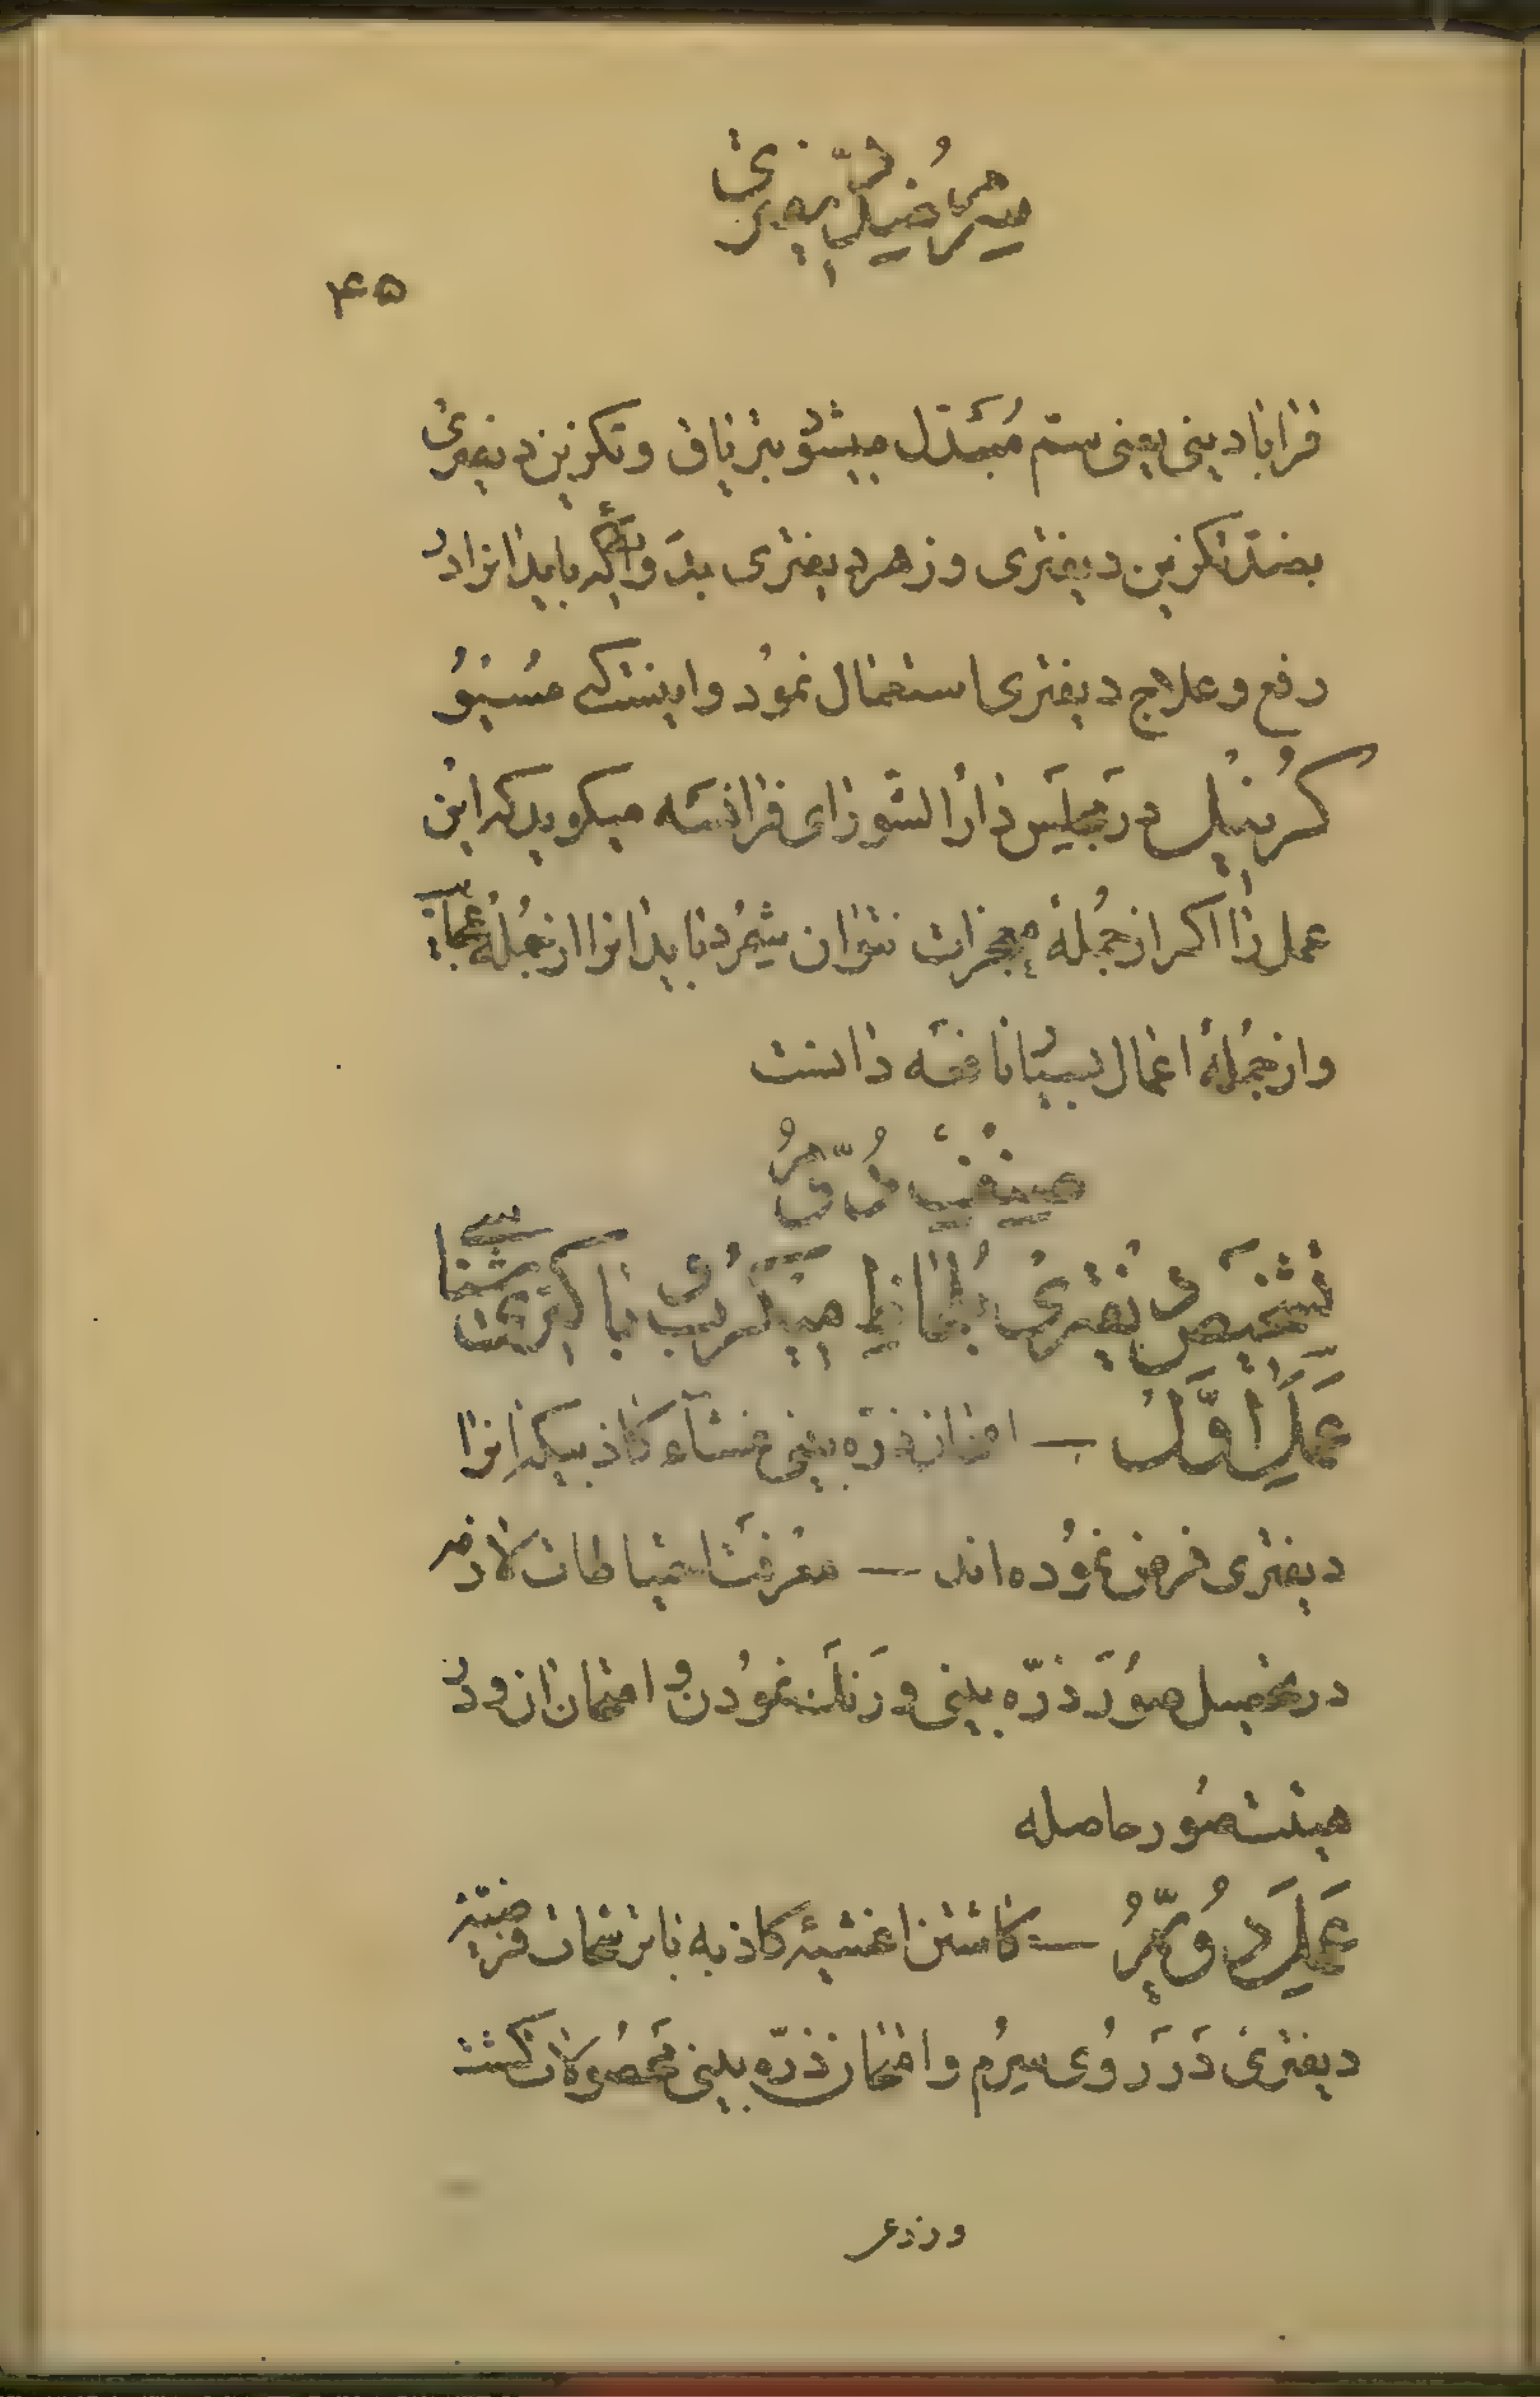 مرض دیفتری
۴۵
قرابادینی یعنی ستم مبتذل میشود بتریاق و تکزین دیفتری
بضد تکزین دیفتری و زهر دیفتری بدوائیکه باید انرا در
دفع و علاج دیفتری استعمال نمود و اینست که مسیو
کرنیل در مجلس دار الشورای فرانسه میکوید که این
عمل را اکر از جملهٔ معجزات نتوان شمرد باید انرا از جملهٔ عجایب
و از جملهٔ اعمال بسیار نافعه دانست
تشخیص دیفتری بلحاظ میکرب یا باکتری شناسی
عمل اول — امتحان ذره بینی منشاء کاذب که انرا
دیفتری فرض نموده اند — معرفت احتیاطات لازمه
در تحصیل صور ذرّه بینی و رنک نمودن و امتحان ان و در
هیئت صور حاصله
عمل دویم — کاشتن اغشیهٔ کاذبه یا ترشحات
دیفتری در روی سیرم و امتحان ذرّه بینی محصولات کشت
و زرع